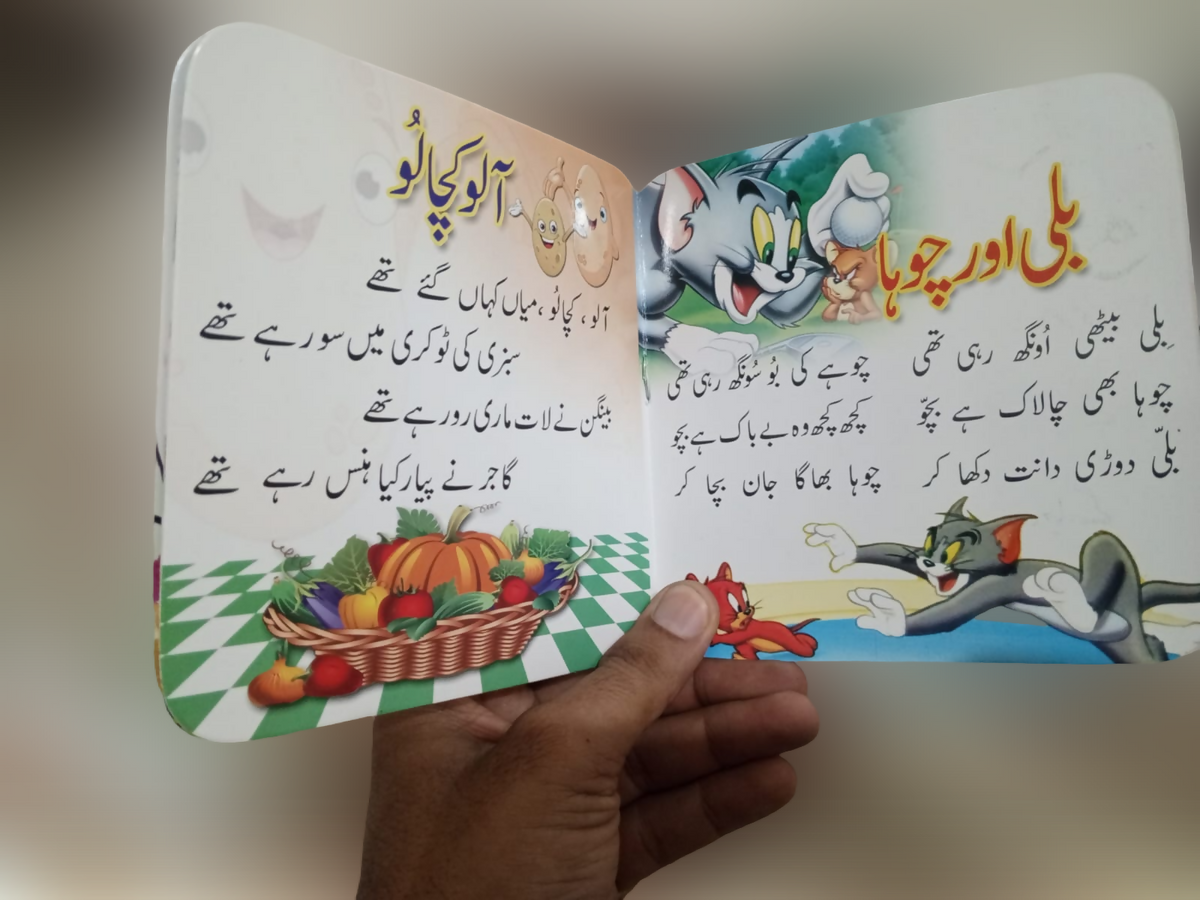 بلی اور چوہا
بِلی بیٹھی اُونگھ رہی تھی
چوہے کی بُو سُونگھ رہی تھی
چوہا بھی چالاک ہے بچّو
کچھ کچھ وہ بے باک ہے بچو
بلّی دوڑی دانت دکھا کر
چوہا بھاگا جان بچا کر
آلو کچالُو
آلو، کچالُو، میاں کہاں گئے تھے
سبزی کی ٹوکری میں سو رہے تھے
بینگن نے لات ماری رو رہے تھے
گاجر نے پیار کیا ہنس رہے تھے